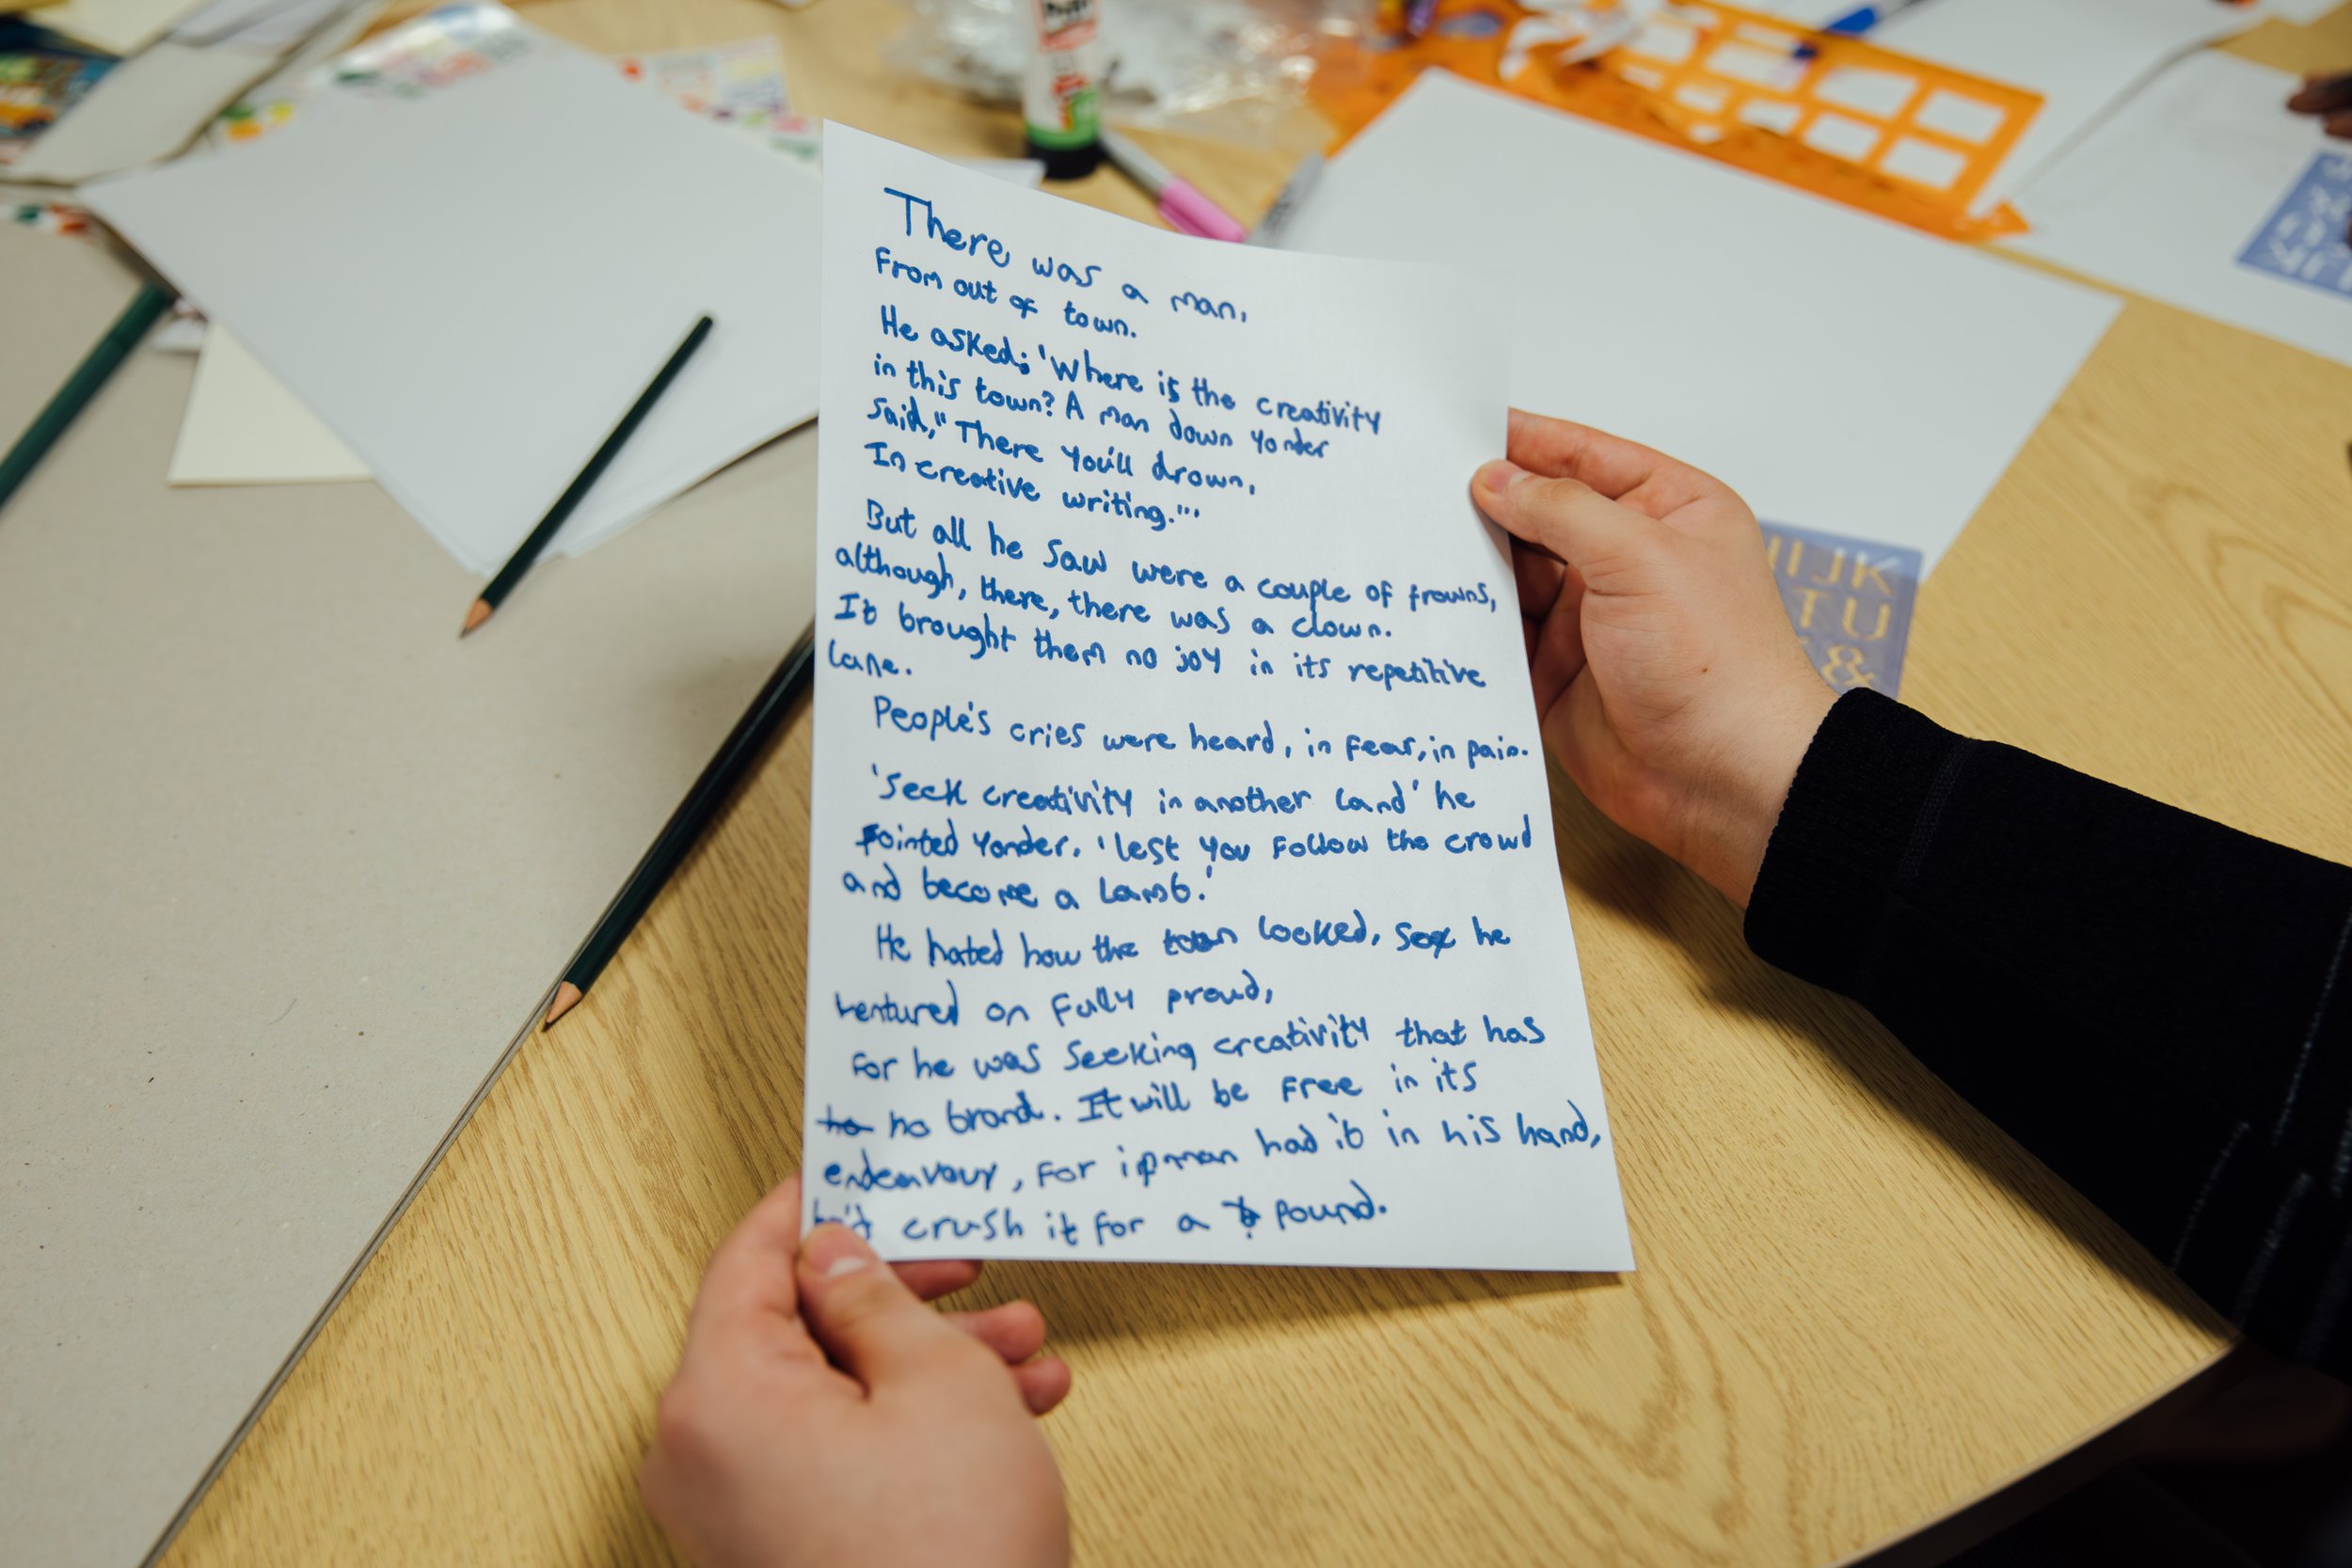 There was a man,
From out of town.
He asked; 'Where is the creativity
in this town? A man down yonder
said, "There you'll drown,
In creative writing."'
But all he saw were a couple of frowns,
although, there, there was a clown.
It brought them no joy in its repetitive
lane.
People's cries were heard, in fear, in pain.
'Seek creativity in another land' he
pointed yonder. 'lest you follow the crowd
and become a lamb.'
He hated how the town looked, so he
ventured on fully proud,
For he was seeking creativity that has
no brand. It will be free in its
endeavour, for if man had it in his hand,
he'd crush it for a pound.
IJK
TU
&